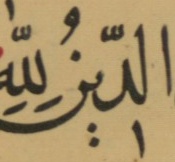 الدِّينُ لِلّٰهِ